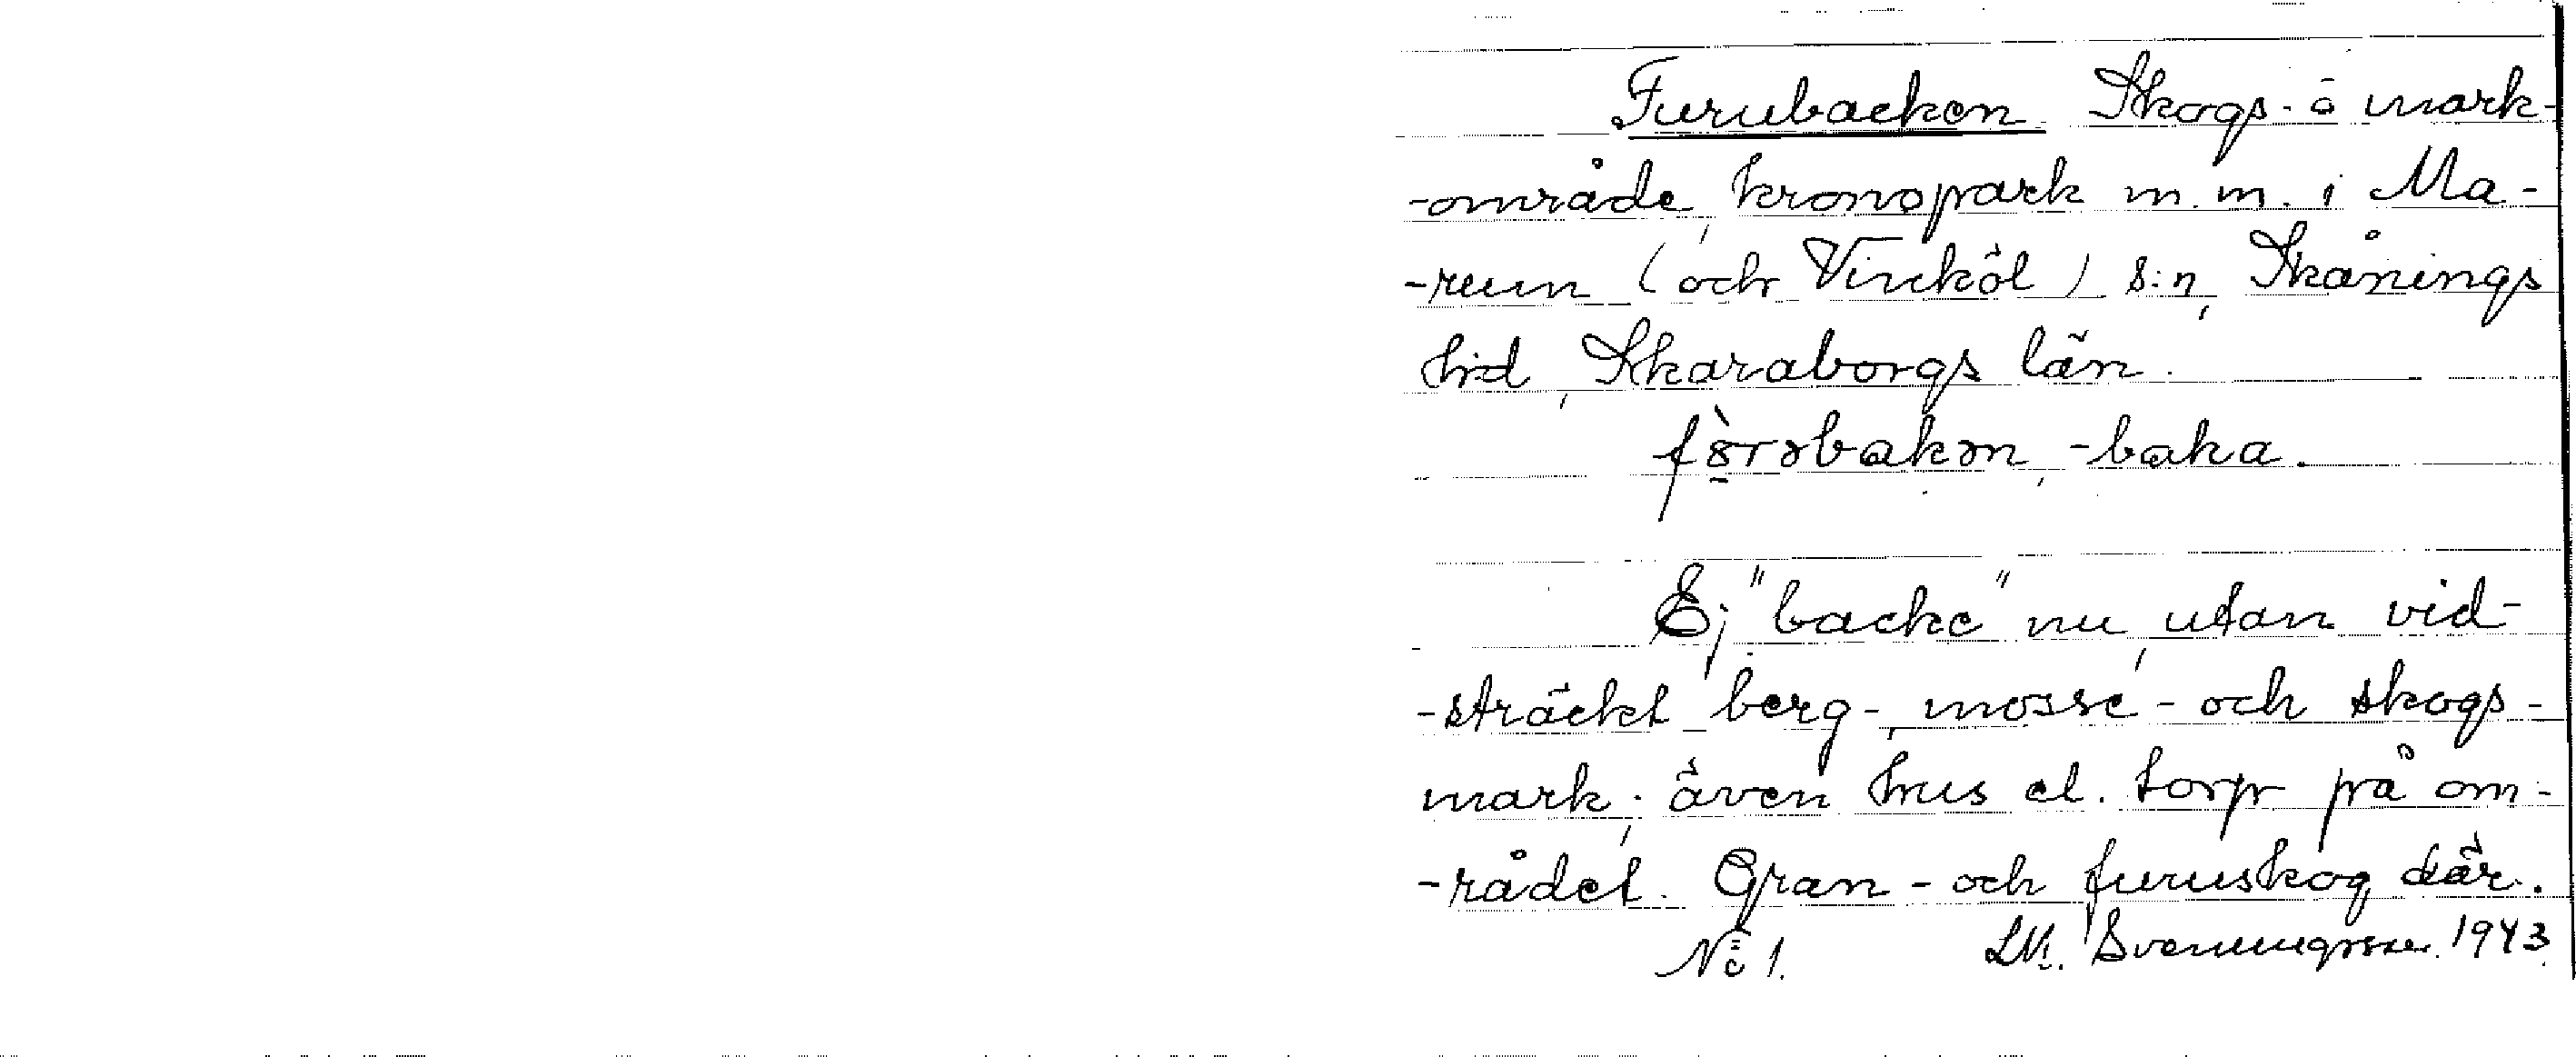 Furubacken Skogs- o mark-
-område, kronopark m.m. i Ma-
-rum (och Vinköl) s:n, Skånings
hd, Skaraborgs län.
-baka.
Ej "backe" nu, utan vid-
-sträckt berg-, mosse- och skogs-
mark; även hus el. torp på om-
-rådet. Gran- och furuskog där.
1. Svenungsson 1943